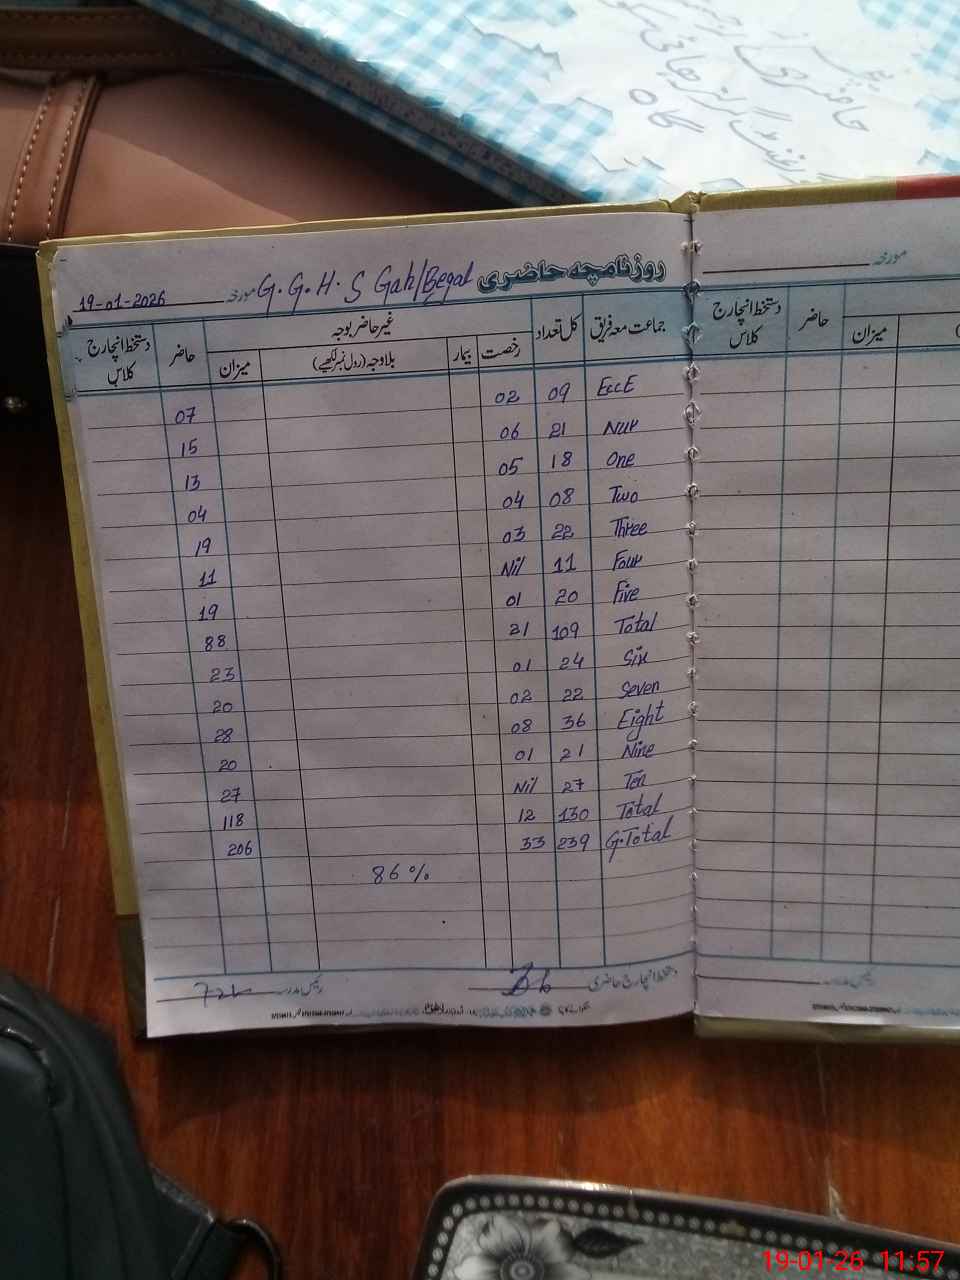 حاضری
گاہ
روزنامچہ حاضری G.G.H.S Gah/Begal مورخہ 19-01-2026
جماعت معہ فریق کل تعداد غیر حاضر بوجہ حاضر دستخط انچارج کلاس
رخصت بیمار بلاوجہ (رول نمبر لکھیے) میزان
EccE 09 02 07
Nur 21 06 15
One 18 05 13
Two 08 04 04
Three 22 03 19
Four 11 Nil 11
Five 20 01 19
Total 109 21 88
Six 24 01 23
Seven 22 02 20
Eight 36 08 28
Nine 21 01 20
Ten 27 Nil 27
Total 130 12 118
G.Total 239 33 206
86%
دستخط انچارج حاضری رئیس مدرسہ
مورخہ
دستخط انچارج کلاس حاضر میزان
رئیس مدرسہ
19-01-26 11:57